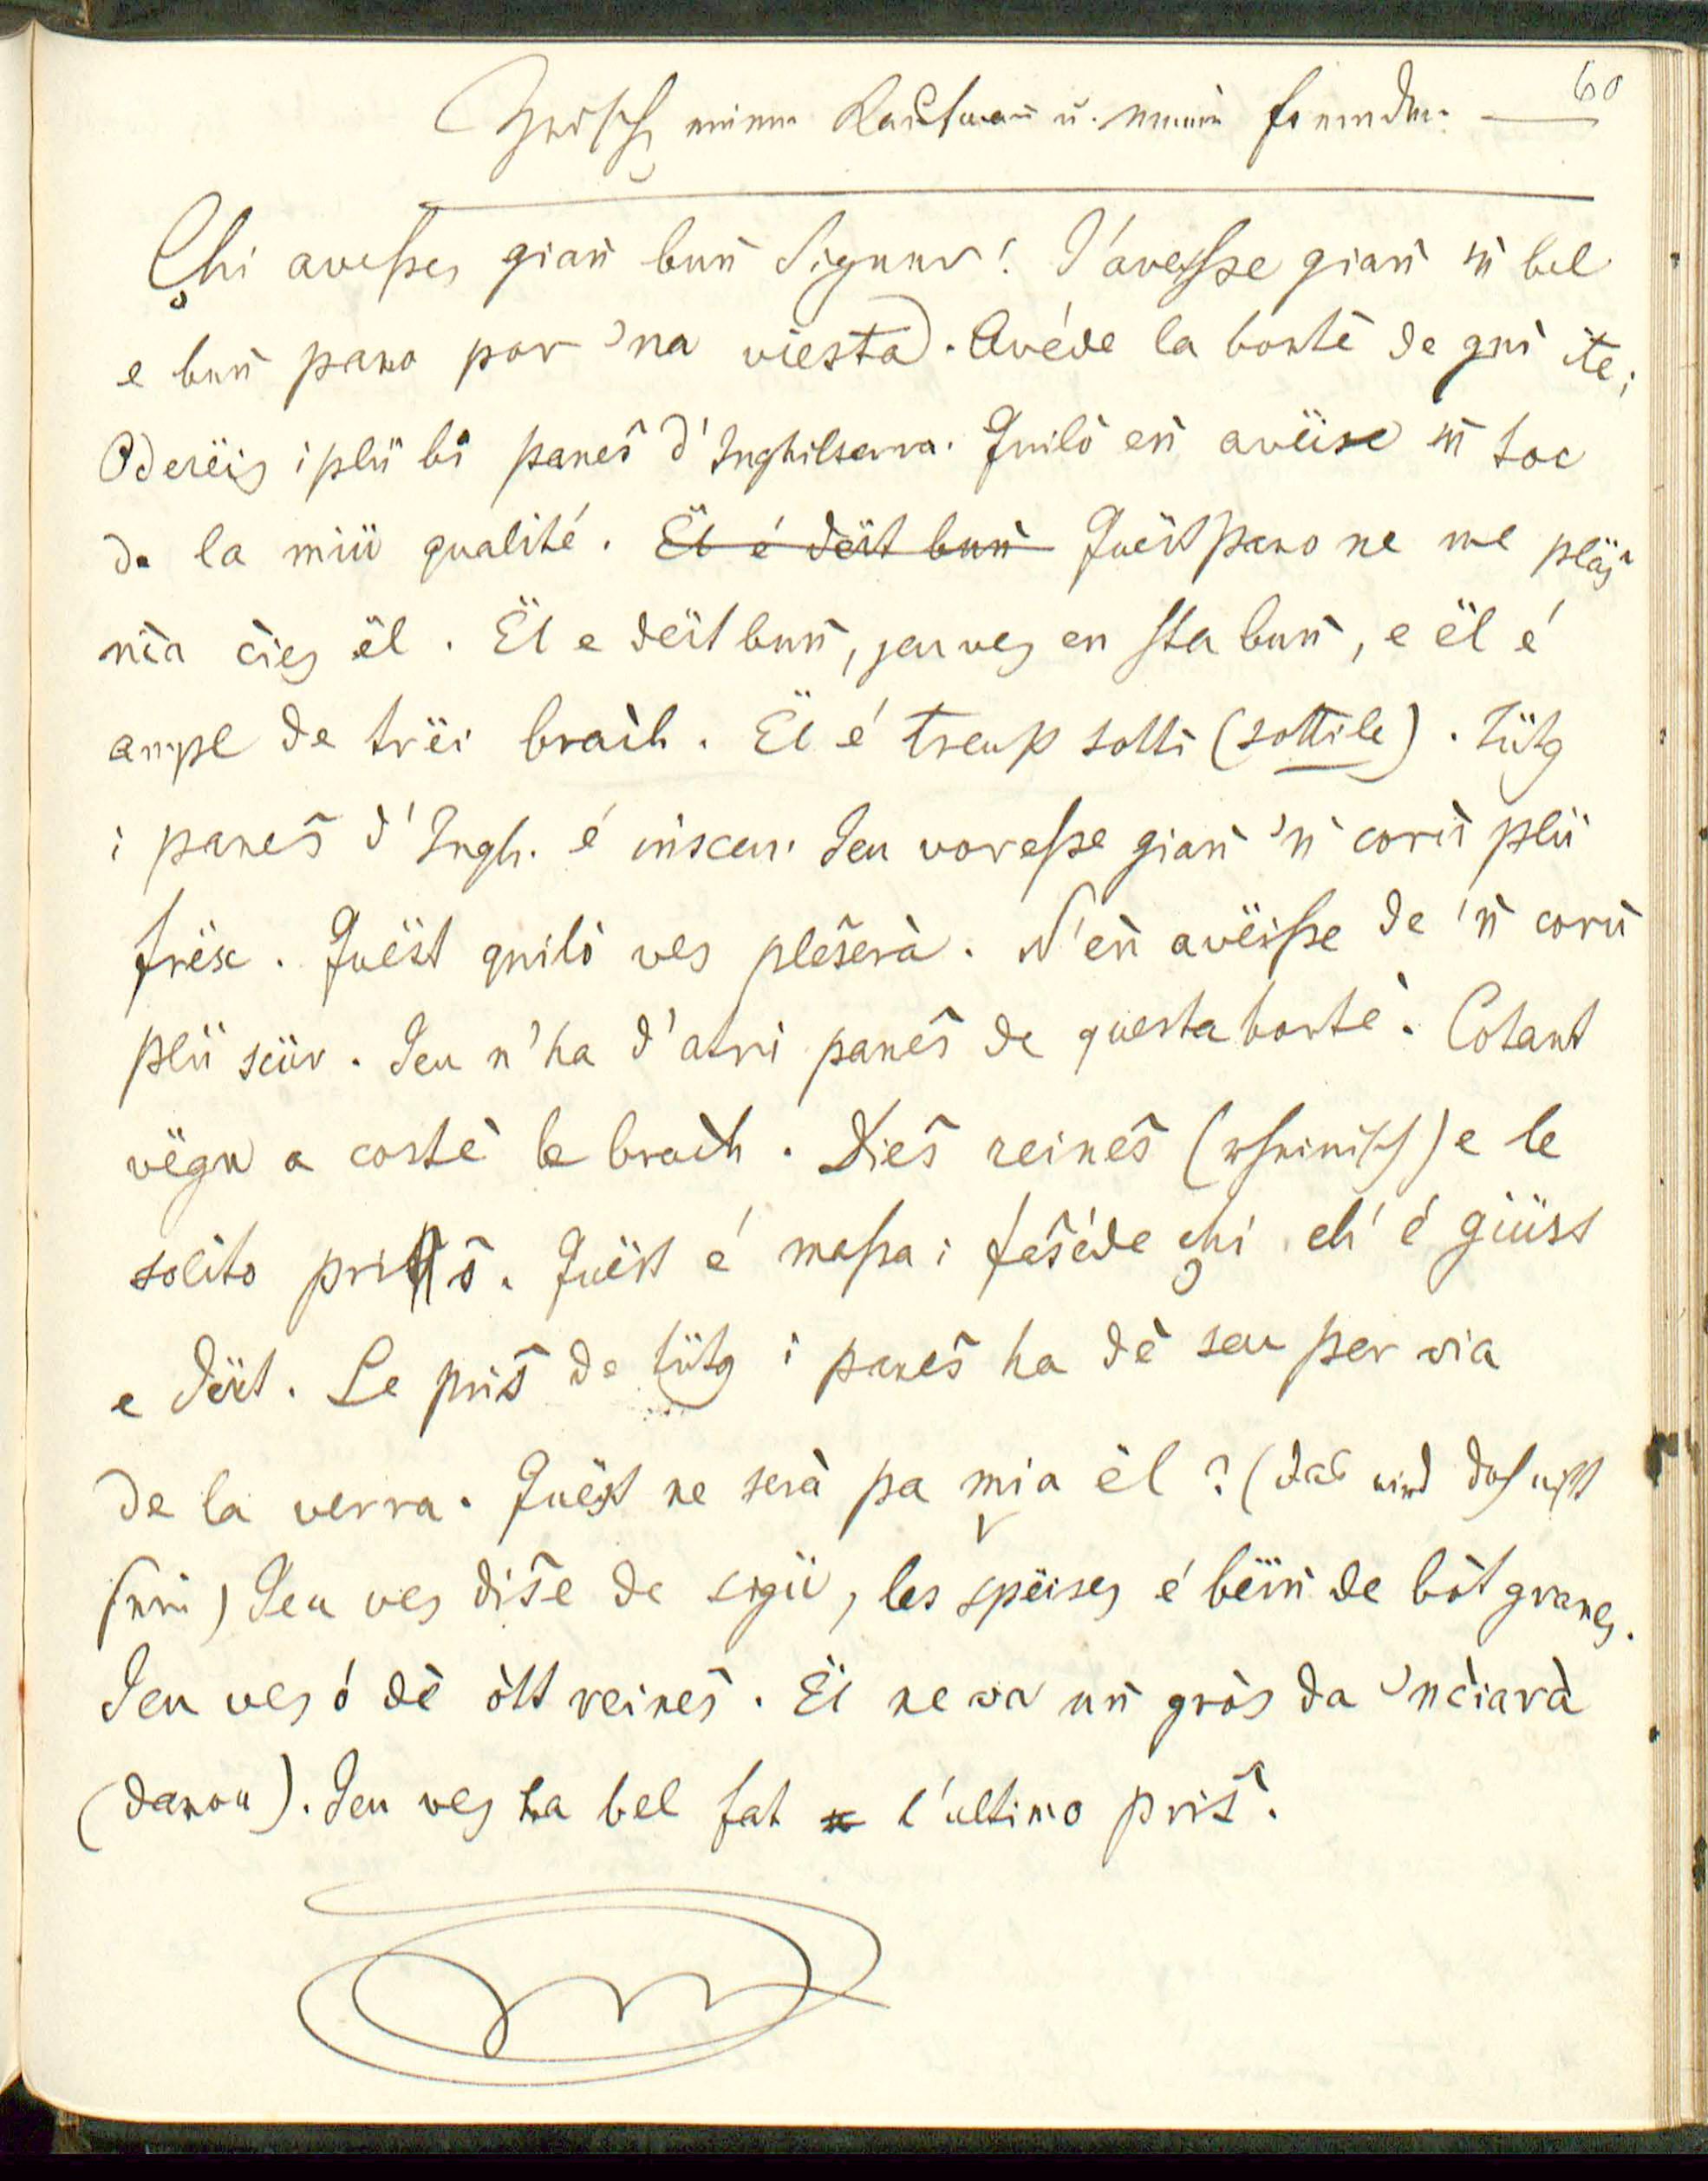 60
Zwisch einem Kaufmañ u. einem fremden. —
Çhi avesses giaǹ buǹ Signur! J'avesse giaǹ 'ǹ bel
e buǹ pano por 'na viesta. Avéde la bontè de gnì ite;
Odereis i plü bì panes̃ d'Inghilterra. Quilò eǹ avëise 'ǹ toc
de la miù qualité. E̶l̶ ̶é̶ ̶d̶ë̶r̶t̶ ̶b̶u̶ǹ̶ Quëst pano ne me plës̃
nia cies ël. Ël e dërt buǹ, jeu ves en sta buǹ, e ël é
ampl de trëi braćh. Ël é treup sotti (sottile). Tütg
i panes̃ d'Ingh. é insceu. Jeu voresse giaǹ 'ǹ corù plü
frësc. Quëst quilò ves ples̃erà. N'eǹ avëisse de 'ǹ corù
plü scür. Jeu n'ha d'atri panes̃ de questa bontè. Cotant
vëgn a costè le braćh. Dies̃ reines̃ (rheinisch) e le
solito pris̃. Quëst é massa; fes̃éde chi ch'é giüst
e dërt. Le pris̃ de tütg i panes̃ ha dè seu per via
de la verra. Quëst ne serà pa mia ël? (das wird doch nicht
sein) Jeu ves dis̃e de sigü, les spëises é bëiǹ de bòt granes.
Jeu ves ó dè òtt reines̃. Ël ne va uǹ gròs da 'nciarà
(danou). Jeu ves ha bel fat l'ultimo pris̃.